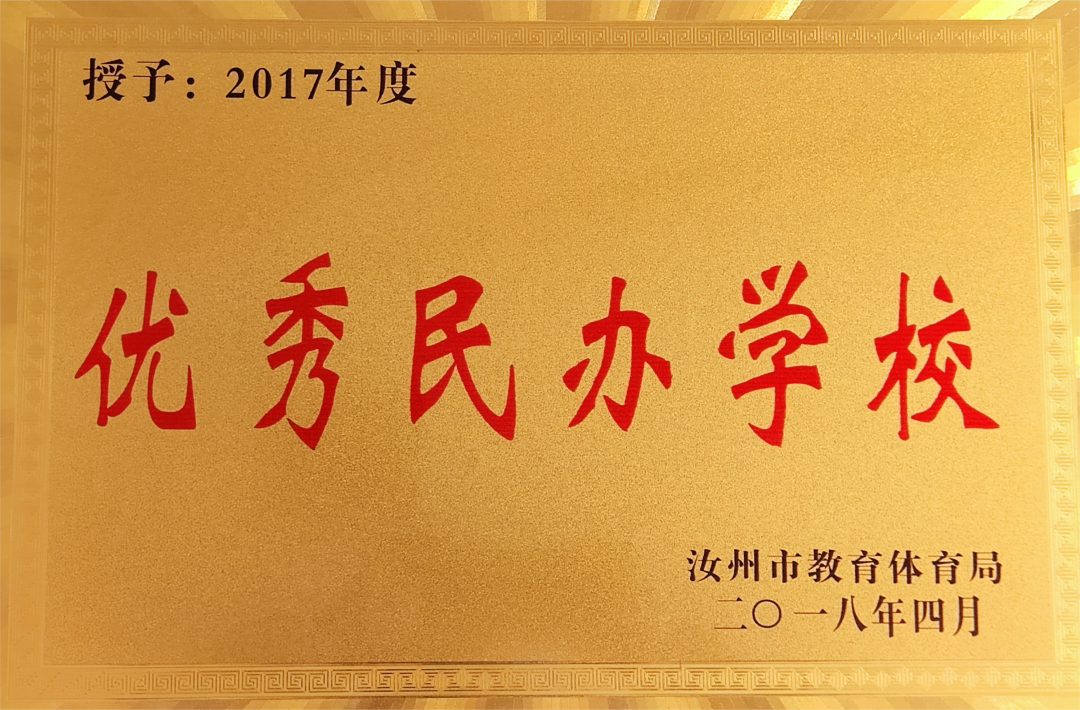 授予：2017年度
优秀民办学校
汝州市教育体育局
二〇一八年四月